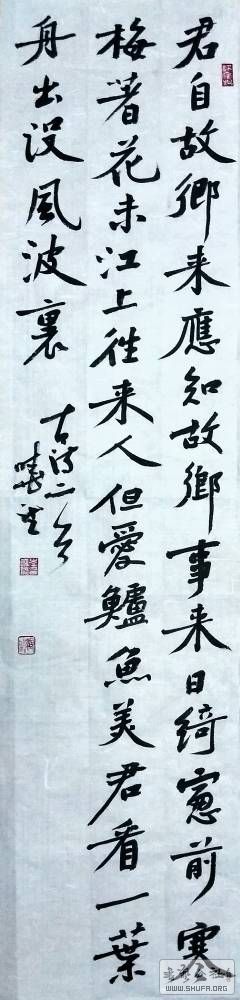 君自故鄉来應知故鄉事来日綺窗前寒
梅著花未江上往来人但愛鱸魚美君看一葉
舟出没風波裏
古诗二首
WWW.SHUFA.ORG